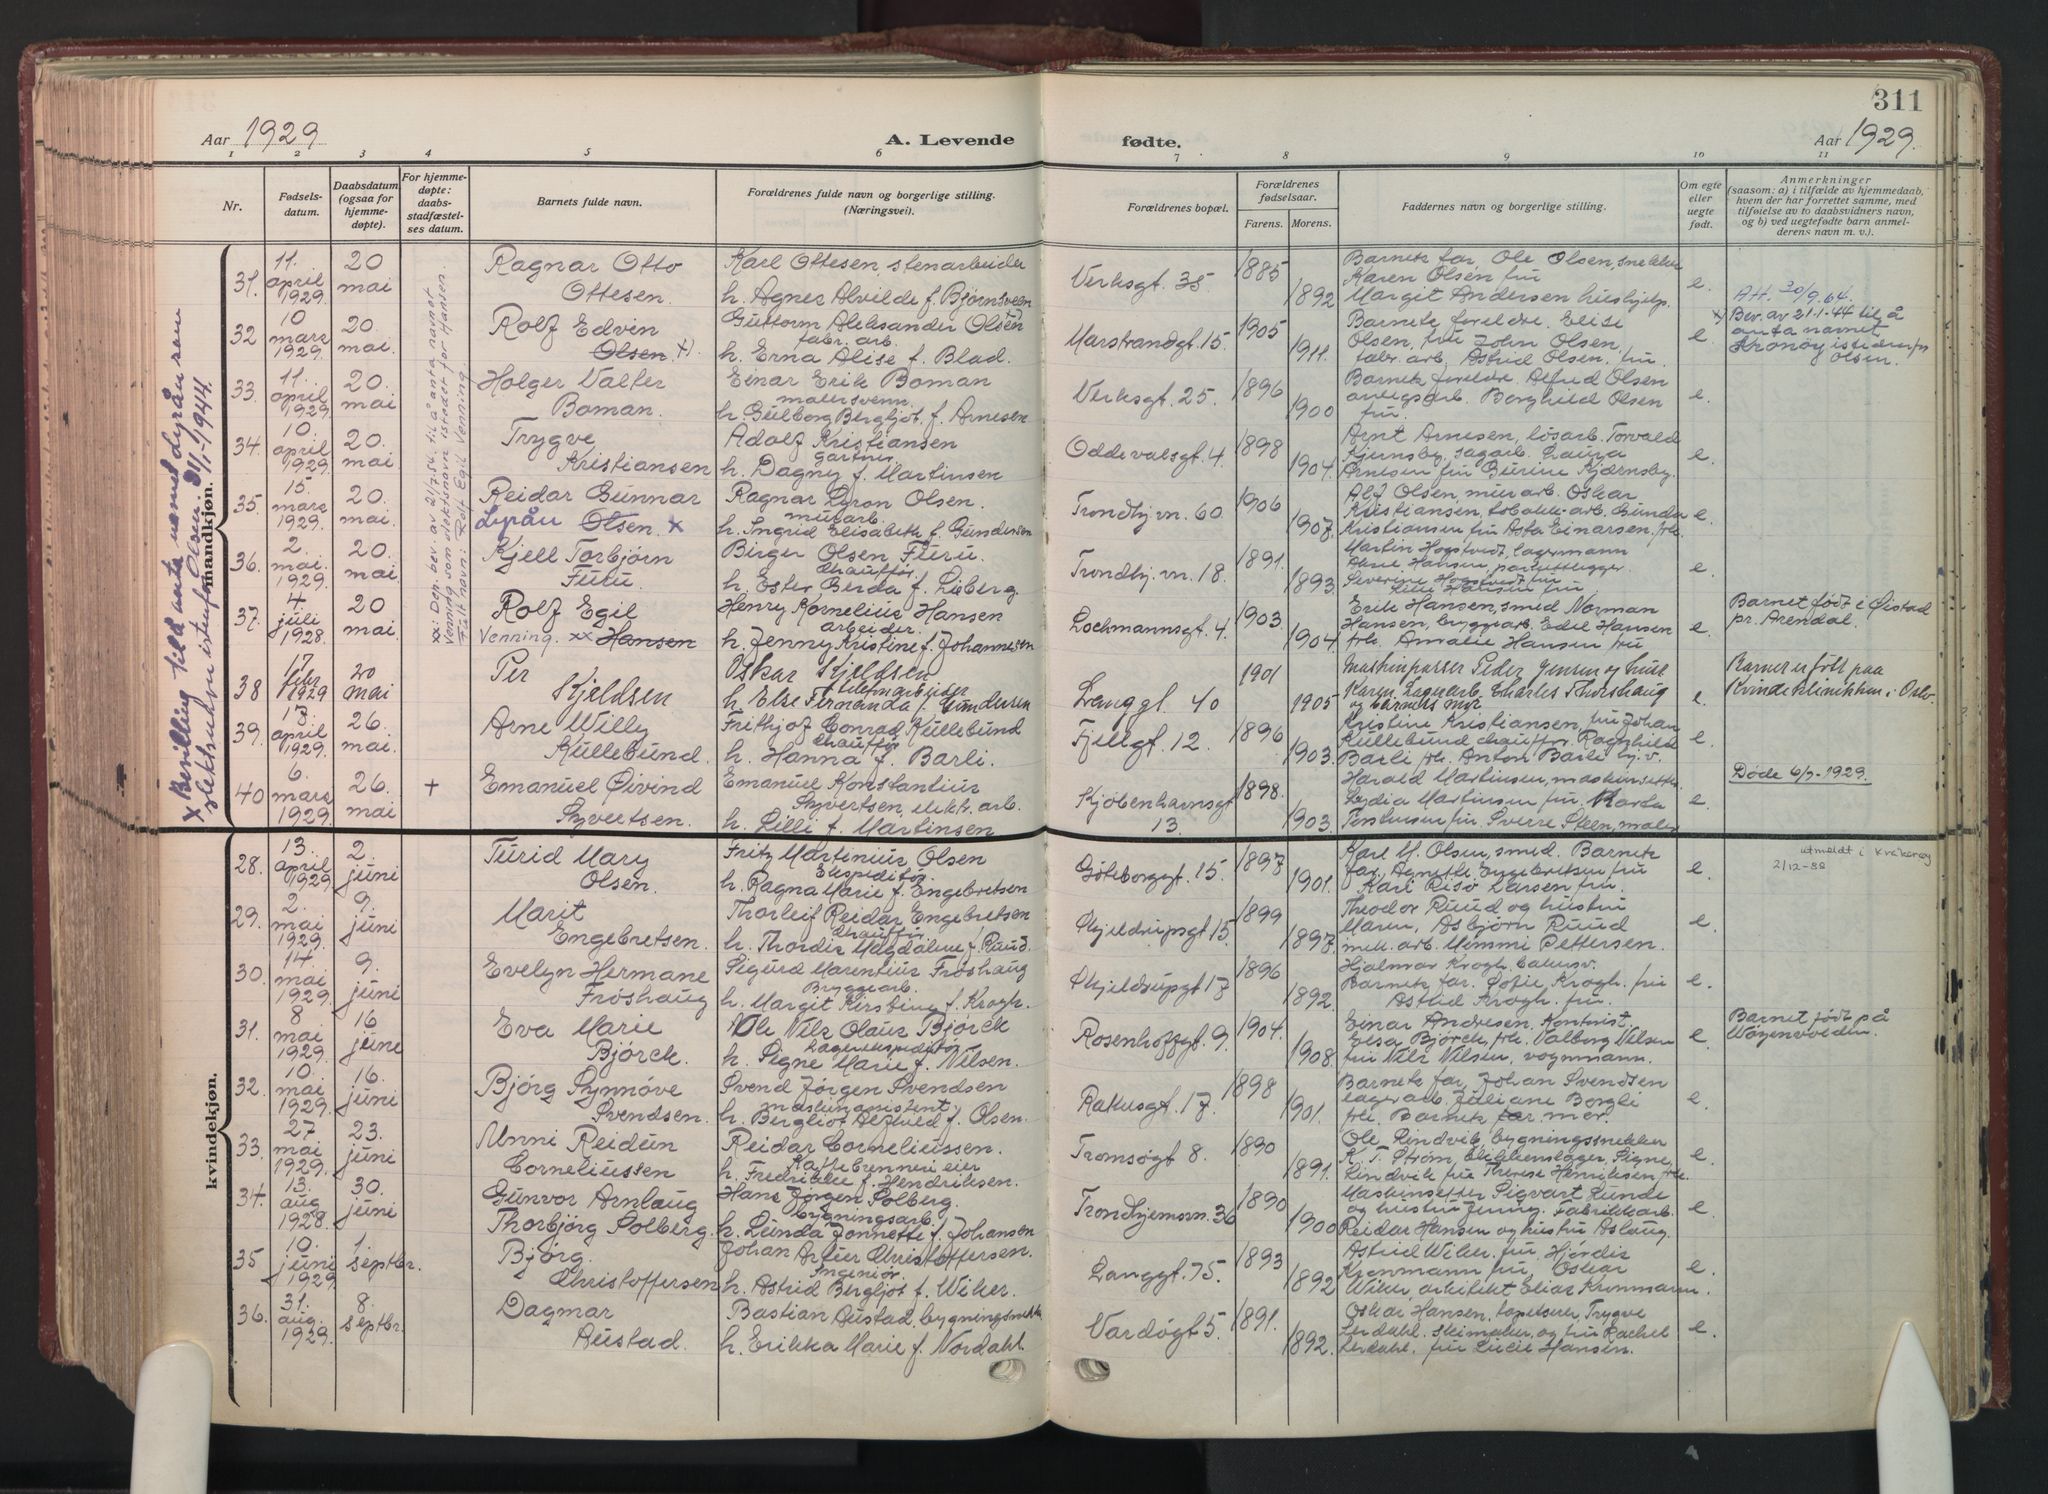 311
Aar 1929
A. Levende
fødte.
Aar 1929.
1 2 3 4 5 6 7 8 9 10 11
Nr.
Fødsels-
datum.
Daabsdatum
(ogsaa for
hjemme-
døpte).
For hjemme-
døpte:
daabs-
stadfæstel-
ses datum.
Barnets fulde navn.
Forældrenes fulde navn og borgerlige stilling.
(Næringsvei).
Forældrenes bopæl.
Forældrenes
fødselsaar.
Farens.
Morens.
Faddernes navn og borgerlige stilling.
Om egte
eller
uegte
født.
Anmerkninger
(saasom: a) i tilfælde av hjemmedaab,
hvem der har forrettet samme, med
tilføielse av to daabsvidners navn,
og b) ved uegtefødte barn anmel-
derens navn m. v.).
x Bevilling til å anta navnet Lyrån som
slektsnavn istedenfor Olsen. 31/1-1944.
mandkjøn.
xx: Dep. bev. av 21/7.54. til å anta navnet
Venning som slektsnavn istedet for Hansen.
Fullt navn: Rolf Egil Venning.
31. 11. april 1929. 20 mai
Ragnar Otto
Ottesen.
Karl Ottesen, stenarbeider
h. Agnes Alvilde f. Bjørnsveen
Verksgt. 35
1885
1892
Barnets far, Ole Olsen, snekker
Karen Olsen fru
Margit Andersen hushjelp.
e.
32 10 mars 1929. 20. mai.
Rolf Edvin
Olsen. x)
Guttorm Aleksander Olsen
fabr. arb.
h. Erna Alise f. Blad.
Marstrandgt. 15.
1905
1911.
Barnets foreldre. Elise
Olsen, fru John Olsen,
fabr. arb, Astrid Olsen, fru.
e.
AH. 30/9.64.
x) Bev. av 21-1-44 til å
anta navnet
Kronøy istedenfor
Olsen.
33. 11. april 1929. 20. mai
Holger Valter
Boman.
Einar Erik Boman
malersvenn.
h. Gulborg Bergljot f. Arnesen
Verksgt. 25.
1896
1900
Barnets foreldre. Alfred Olsen
anlegsarb. Borghild Olsen
fru.
e.
34. 10. april 1929. 20. mai.
Trygve
Kristiansen
Adolf Kristiansen
gartner
h. Dagny f. Martinsen
Oddevalsgt. 4.
1898
1904.
Arnt Arnesen, løsarb. Torvald
Kjernsby, sagarb. Laura
Arnesen fru Gurine Kjærnsby.
e.
35. 15. mars 1929. 20. mai.
Reidar Gunnar
Lyrån Olsen. x
Ragnar Lyron Olsen.
murarb.
h. Ingrid Elisabeth f. Gundersen
Trondhj.vn. 60
1906
1907.
Alf Olsen, murarb. Oskar
Kristiansen, tobakk-arb. Gunda
Kristiansen fru Asta Einarsen, frk.
e.
36. 2. mai. 1929. 20. mai.
Kjell Torbjørn
Furu.
Birger Olsen Furu.
Chauffør
h. Ester Berda f. Lieberg.
Trondhj. vn. 18.
1891.
1893.
Martin Hogstvedt, lagermann
Arne Hansen, parkettlegger
Severine Hogstvedt fru
Lilli Hansen fru
e.
37. 4 juli 1928. 20 mai
Rolf Egil
Venning. xx Hansen
Henry Kornelius Hansen
arbeider.
h. Jenny Kristine f. Johannesen
Lochmannsgt. 4.
1903.
1904.
Erik Hansen, smed Norman
Hansen, byggearb. Edel Hansen
frk. Amalie Hansen fru
e.
Barnet født i Øistad
pr. Arendal.
38 17 febr 1929 20 mai
Per
Kjeldsen
Oskar Kjeldsen
telefonarbeider
h. Else Fernanda f. Gundersen
Langgt. 40
1901
1905
Maskinpasser Peder Jensen og hustru
Karen, Lagerarb. Charles Thorshaug
og barnets mor
e.
Barnet er født paa
Kvindeklinikken i Oslo.
39. 13. april 1929. 26. mai
Arne Willy
Kullebund.
Frithjof Conrad Kullebund
Chauffør
h. Hanna f. Barli.
Fjellgt. 12.
1896
1903.
Kristine Kristiansen, fru Johan
Kullebund chauffør, Ragnhild
Barli frk. Anton Barli
e.
40 6. mars 1929 26. mai
+
Emanuel Øivind
Syvertsen.
Emanuel Konstantius
Syvertsen, elektr. arb.
h. Lilli f. Martinsen
Kjøbenhavnsgt
13.
1898.
1903.
Harald Martinsen, maskinsetter,
Lydia Martinsen fru, Karda
Torstensen fru. Sverre Steen, maler
e.
Døde 6/7-1929.
kvindekjøn.
28. 13. april 1929 2. juni
Turid Mary
Olsen.
Fritz Martinius Olsen
Ekspeditør
h. Ragna Marie f. Engebretsen
Gøteborggt. 15.
1897
1901.
Karl M. Olsen, smed. Barnets
far, Agnethe Engebretsen fru
Karl Risø Larsen fru.
e.
utmeldt i Kråkerøy
2/12-88
29. 2. mai 1929. 9. juni
Marit
Engebretsen.
Thorleif Reidar Engebretsen
Chauffør
h. Thordis Magdalene f. Ruud.
Skjeldrupsgt 15.
1899
1897.
Theodor Ruud og hustru
Maren, Asbjørn Ruud
mek. arb. Mimmi Pettersen.
e.
30. 14 mai 1929. 9. juni
Evelyn Hermane
Frøshaug
Sigurd Marentius Frøshaug
Bryggearb.
h. Margit Kirstine f. Krogh.
Skjeldrupgt 17
1896
1892.
Hjalmar Krogh
Barnets far. Sofie Krogh. fru
Astrid Krogh. fru.
e.
31. 8 mai 1929. 16 juni
Eva Marie
Bjørck.
Ole Nils Olaus Bjørck
Lagerekspeditør
h. Signe Marie f. Nilsen.
Rosenhoffgt. 9.
1904.
1908.
Einar Andresen, Kontorist
Elsa Bjørck, frk. Valborg Nilsen
fru Nils Nilsen, vognmann.
e.
Barnet født på
32. 10. mai 1929. 16. juni
Bjørg Synnøve
Svendsen.
Svend Jørgen Svendsen
maskinassistent
h. Bergliot Alfhild f. Olsen.
Ratusgt. 17.
1898
1901.
Barnets far, Johan Svendsen
lagerarb. Juliane Borgli
frk. Barnets far mor.
e.
33. 27 mai 1929. 23. juni
Unni Reidun
Corneliussen
Reidar Corneliussen.
Kaffebrenneri eier
h. Fredrikke f. Hendriksen.
Tromsøgt 8.
1890
1891.
Ole Lindvik, bygningssnekker
K. T. Strøm, blikkenslager, Signe
Lindvik fru Therese Henriksen frk.
e.
34. 13. aug 1928. 30. juni
Gunvor Arnlaug
Thorbjørg Solberg.
Hans Jørgen Solberg.
bygningsarb.
h. Lunda Jonnette f. Johansen
Trondhjemsvn. 36
1890
1900
Maskinsetter Sigvart Lunde
og hustru Jenny. Fabrikkarb.
Reidar Hansen og hustru Aslaug.
e.
35 10. juni 1929. 1. septbr.
Bjørg.
Christoffersen
Johan Artur Christoffersen.
Ingeniør
h. Astrid Bergljot f. Wiker.
Langgt. 75.
1893
1892
Astrid Wiker. fru Hjørdis
Kronmann fru, Oskar
Wiker, arkitekt Elias Kronmann.
e.
36. 31. aug. 1929. 8. septbr.
Dagmar
Austad.
Bastian Austad, bygningsnekker
h. Erikka Marie f. Nordahl.
Vardøgt 5.
1891.
1892.
Oskar Hansen, tapetserer, Trygve
Lerdahl. skimaker, og fru Rachel
Lerdahl. fru Lucie Hansen.
e.